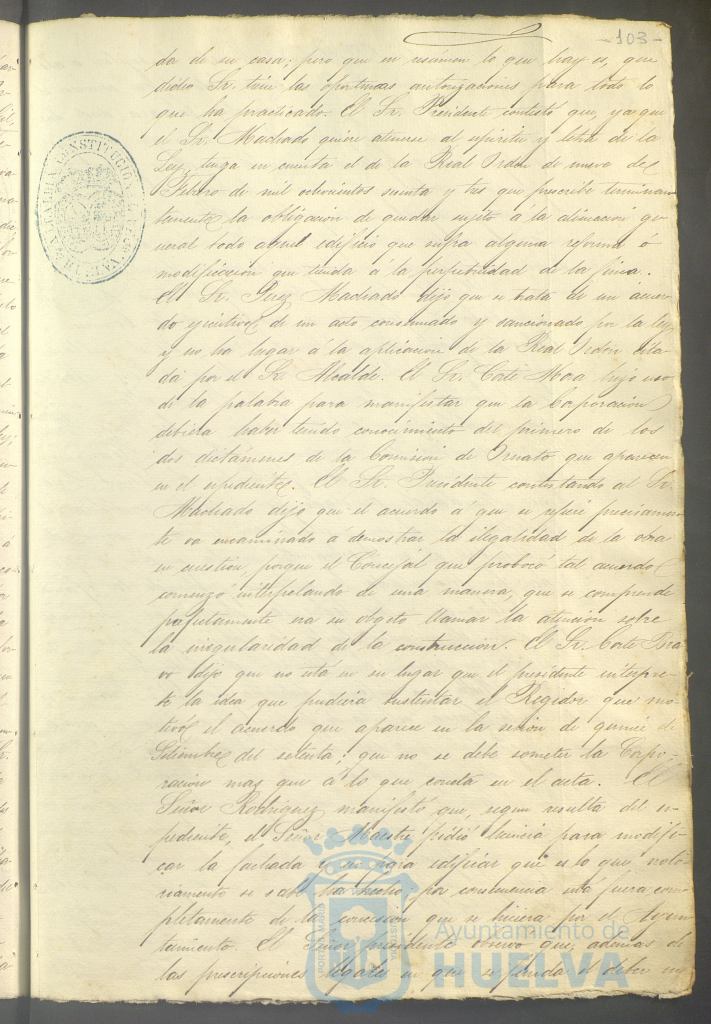 -103-
da de su casa; pero que en resúmen lo que hay es, que
dicho Sr. tiene las oportunas autorizaciones para todo lo
que ha practicado. El Sr. Presidente contestó que, ya que
el Sr. Machado quiere atenerse al espiritu y letra de la
Ley, tenga en cuenta el de la Real Orden de nueve de
Febrero de mil ochocientos sesenta y tres que prescribe terminan
temente la obligacion de quedar sujeto á la alineacion ge
neral todo aquel edificio que sufra alguna reforma ó
modificacion que tienda á la perpetuidad de la finca.
El Sr. Perez Machado dijo que se trata de un acuer-
do ejecutivo, de un acto consumado y sancionado por la ley
y no ha lugar á la aplicacion de la Real Orden cita
da por el Sr. Alcalde. El Sr. Corte Mora hizo uso
de la palabra para manifestar que la Corporacion
debiera haber tenido conocimiento del primero de los
dos dictámenes de la Comision de Ornato que aparecen
en el espediente. El Sr. Presidente contestando al Sr.
Machado dijo que el acuerdo á que se refiere precisamen
te va encaminado á demostrar la ilegalidad de la obra
en cuestion, porque el Concejal que probocó tal acuerdo
comenzó interpelando de una manera, que se comprende
perfectamente era su obgeto llamar la atencion sobre
la irregularidad de la construccion. El Sr. Corte
dijo que no está en su lugar que el presidente interpre-
te la idea que pudiera sustentar el Regidor que mo-
tivó el acuerdo que aparece en la sesion de quince de
Setiembre del setenta; que no se debe someter la Corpo-
racion mas que á lo que consta en el acta. El
Señor Rodriguez manifestó que, segun resulta del es-
pediente, el Señor Maestre pidió licencia para modifi-
car la fachada y no para edificar que es lo que noto-
riamente se sabe ha hecho; por consecuencia está fuera com
pletamente de la concesion que se hiciera por el Ayun
tamiento. El Señor presidente observó que, ademas de
las prescripciones legales en que se funda el deber
ALCALDIA CONSTITUCIONAL HUELVA
PORTUS MARIS
Ayuntamiento de
HUELVA